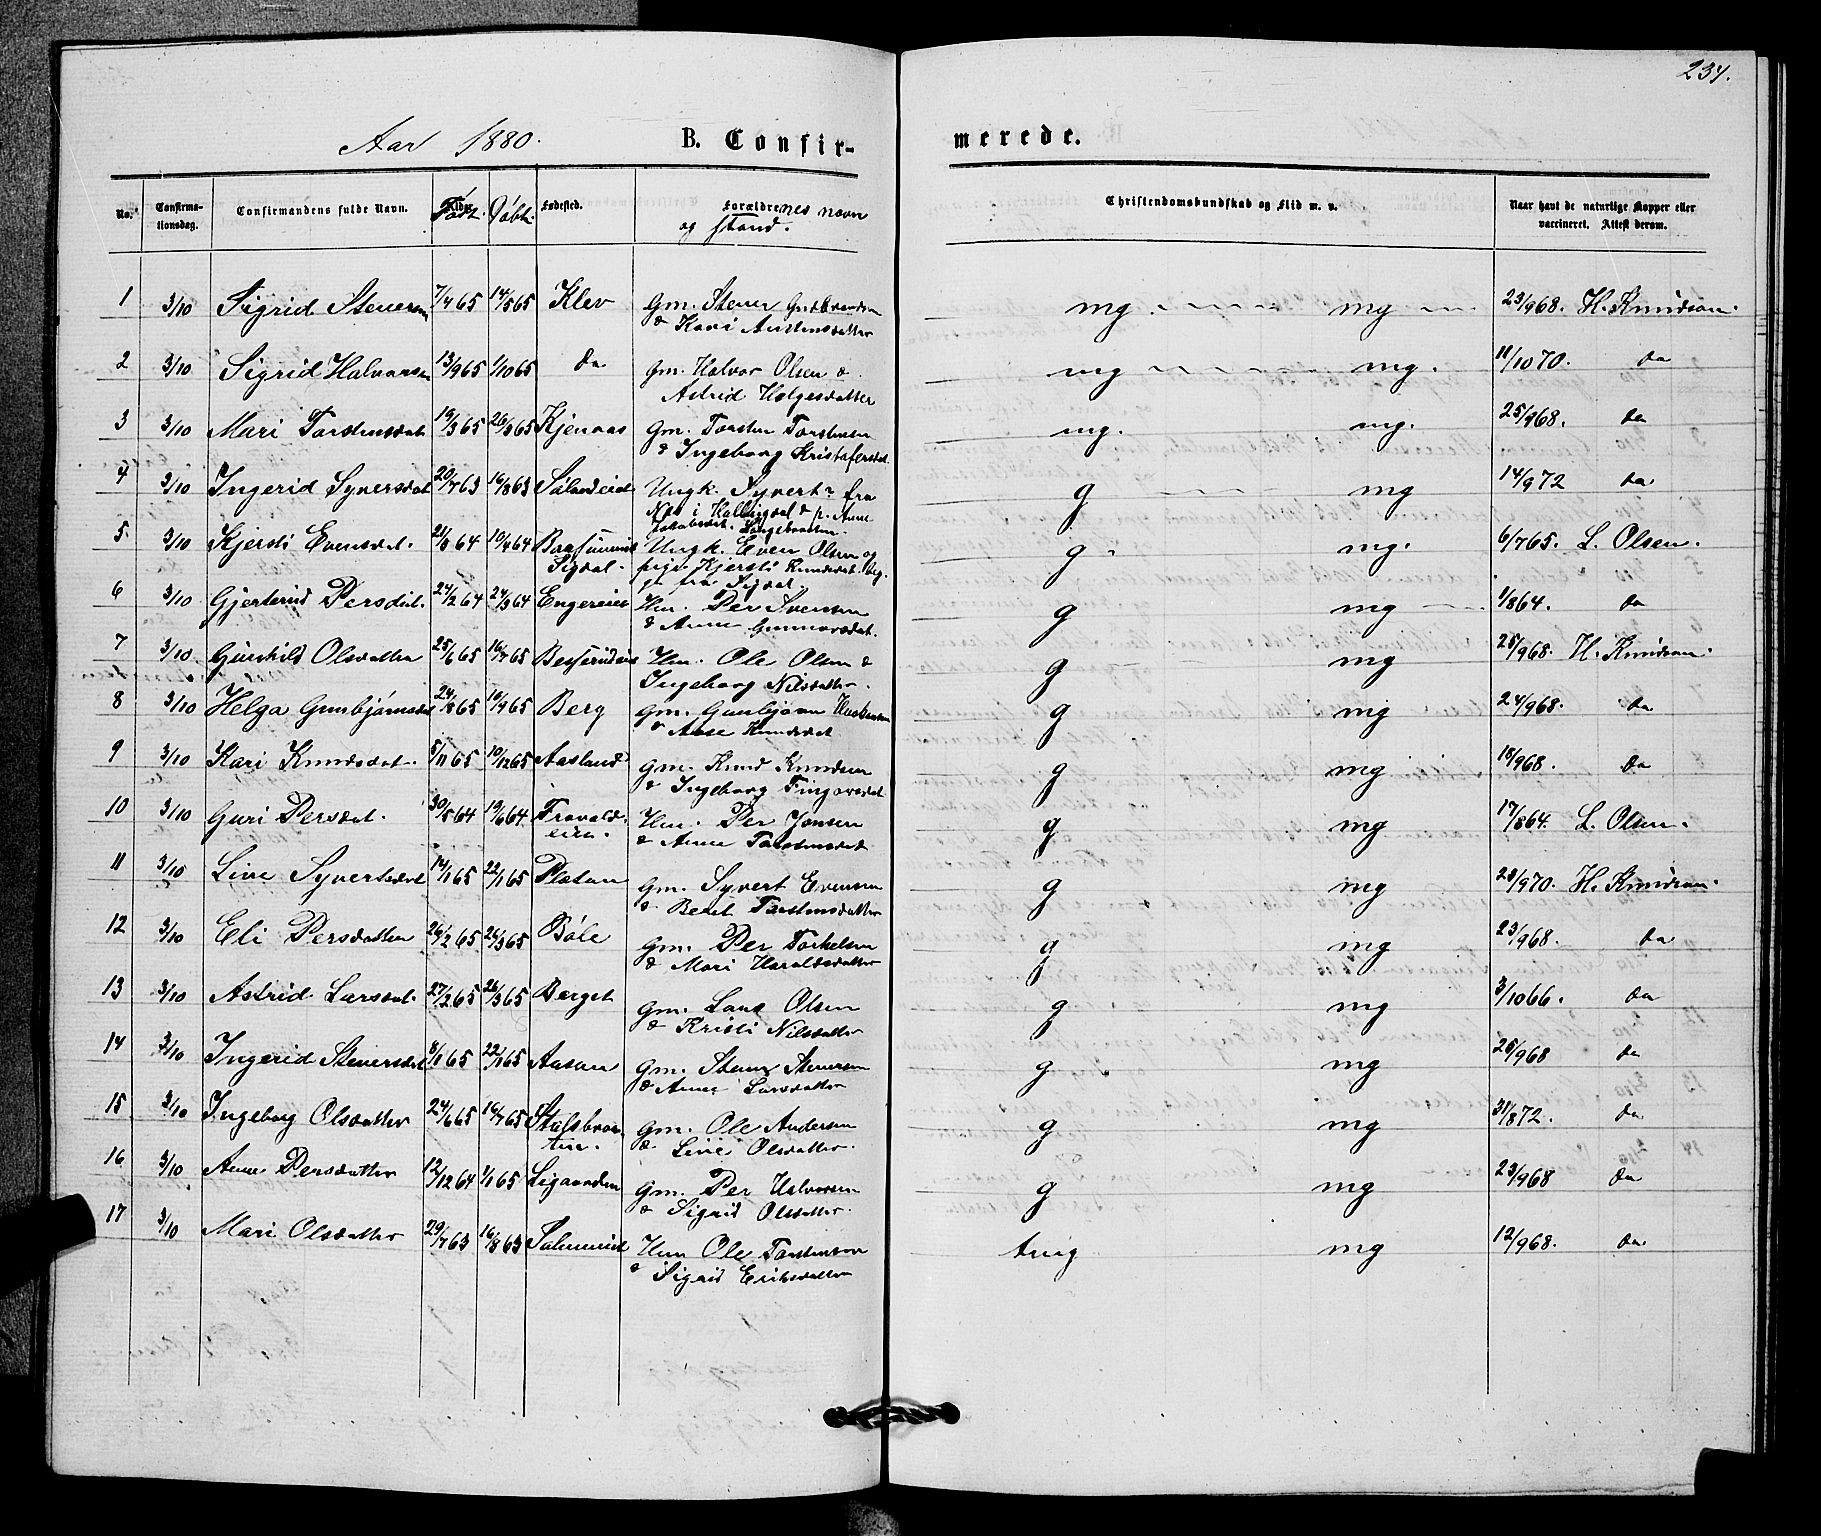 234.
Aar 1880. B. Confir-
merede.
No. Confirmationsdag. Confirmandens fulde Navn. Født. Døbt. Fødested. Forældrenes navn og stand. Christendomskundskab og Flid m. v. Naar havt de naturlige Kopper eller vaccineret. Attest derom.
1 3/10 Sigrid Stenersen 7/4 65 14/5 65 Klev Gm. Stener Guldbrandsen mg mg 23/9 68. H. Knudsen.
& Kari Andensdatter
2 3/10 Sigrid Halvorsen 13/9 65 1/10 65 do Gm. Halvor Olsen & mg mg. 11/10 70. do
Astrid Helgesdatter
3 3/10 Mari Torstensdat 19/3 65 26/3 65 Kjenaas Gm. Torsten Torstensen mg. mg. 25/9 68. do
& Ingeborg Kristofersdat.
4 3/10 Ingerid Syversdat 20/7 63 16/8 63 Ungk. Syvert fra g mg 14/9 72 do
Nes i Hallingdal & p. Anne
Jakobsdat.
5. 3/10 Kjersti Evensdat. 64 10/4 64 Ungk. Even Olsen og g mg. 6/7 65. L. Olsen.
Sigdal. pige Kjersti Knudsdat. beg-
ge fra Sigdal.
6 3/10 Gjertrud Persdat. 24/2 64 24/3 64 Engereiet Hm. Per Svensen g mg 1/8 64. do
& Anne Gunnarsdat.
7 3/10 Gunhild Olsdatter 25/6 65 16/7 65 Hm. Ole Olsen & g mg 25/9 68. H. Knudsen.
Ingeborg Nilsdatter.
8 3/10 Helga Gunbjørnsdat 24/8 65 10/9 65 Berg Gm. Gunbjørn g mg 24/9 68. do
& Anne Knudsdat.
9 3/10 Kari Knudsdat. 5/11 65 10/12 65 Aasland Gm. Knud Knudsen g mg 18/9 68. do
& Ingeborg Fingarsdat
10 3/10 Guri Persdat. 30/5 64 19/6 64. Fravald- Hm. Per Jonsen g mg 17/8 64. L. Olsen.
eien. & Anne Torstensdat
11 3/10 Live Syvertsdat 14/1 65 22/1 65 Platan Gm. Syvert Evensen g mg 23/9 70. H. Knudsen.
& Berit Torstensdatter
12 3/10 Eli Persdatter 26/2 65 26/3 65 Bøle Gm. Per Torkelsen g mg 23/9 68. do
& Mari Haraldsdatter
13 3/10 Astrid Larsdat. 27/2 65 26/3 65 Berget Gm. Lars Olsen g mg 3/10 66. do
& Kristi Nilsdatter
14 3/10 Ingerid Stenersdat 8/1 65 22/1 65 Aasan Gm. Stener Stenersen g mg 25/9 68 do
& Anne Larsdatter
15 3/10 Ingeborg Olsdatter 24/6 65 16/7 65 Stalsbraa- Gm. Ole Andersen g mg 31/8 72. do
ten. & Live Olsdatter.
16 3/10 Anne Persdatter 12/12 64 1/1 65 Ligaarden Gm. Per Halvorsen g mg 23/9 68 do
& Sigrid Olsdatter.
17 3/10 Mari Olsdatter 29/7 63 16/8 63 Hm Ole Torstensen tvig mg 12/9 68. do
& Sigrid Eriksdatter